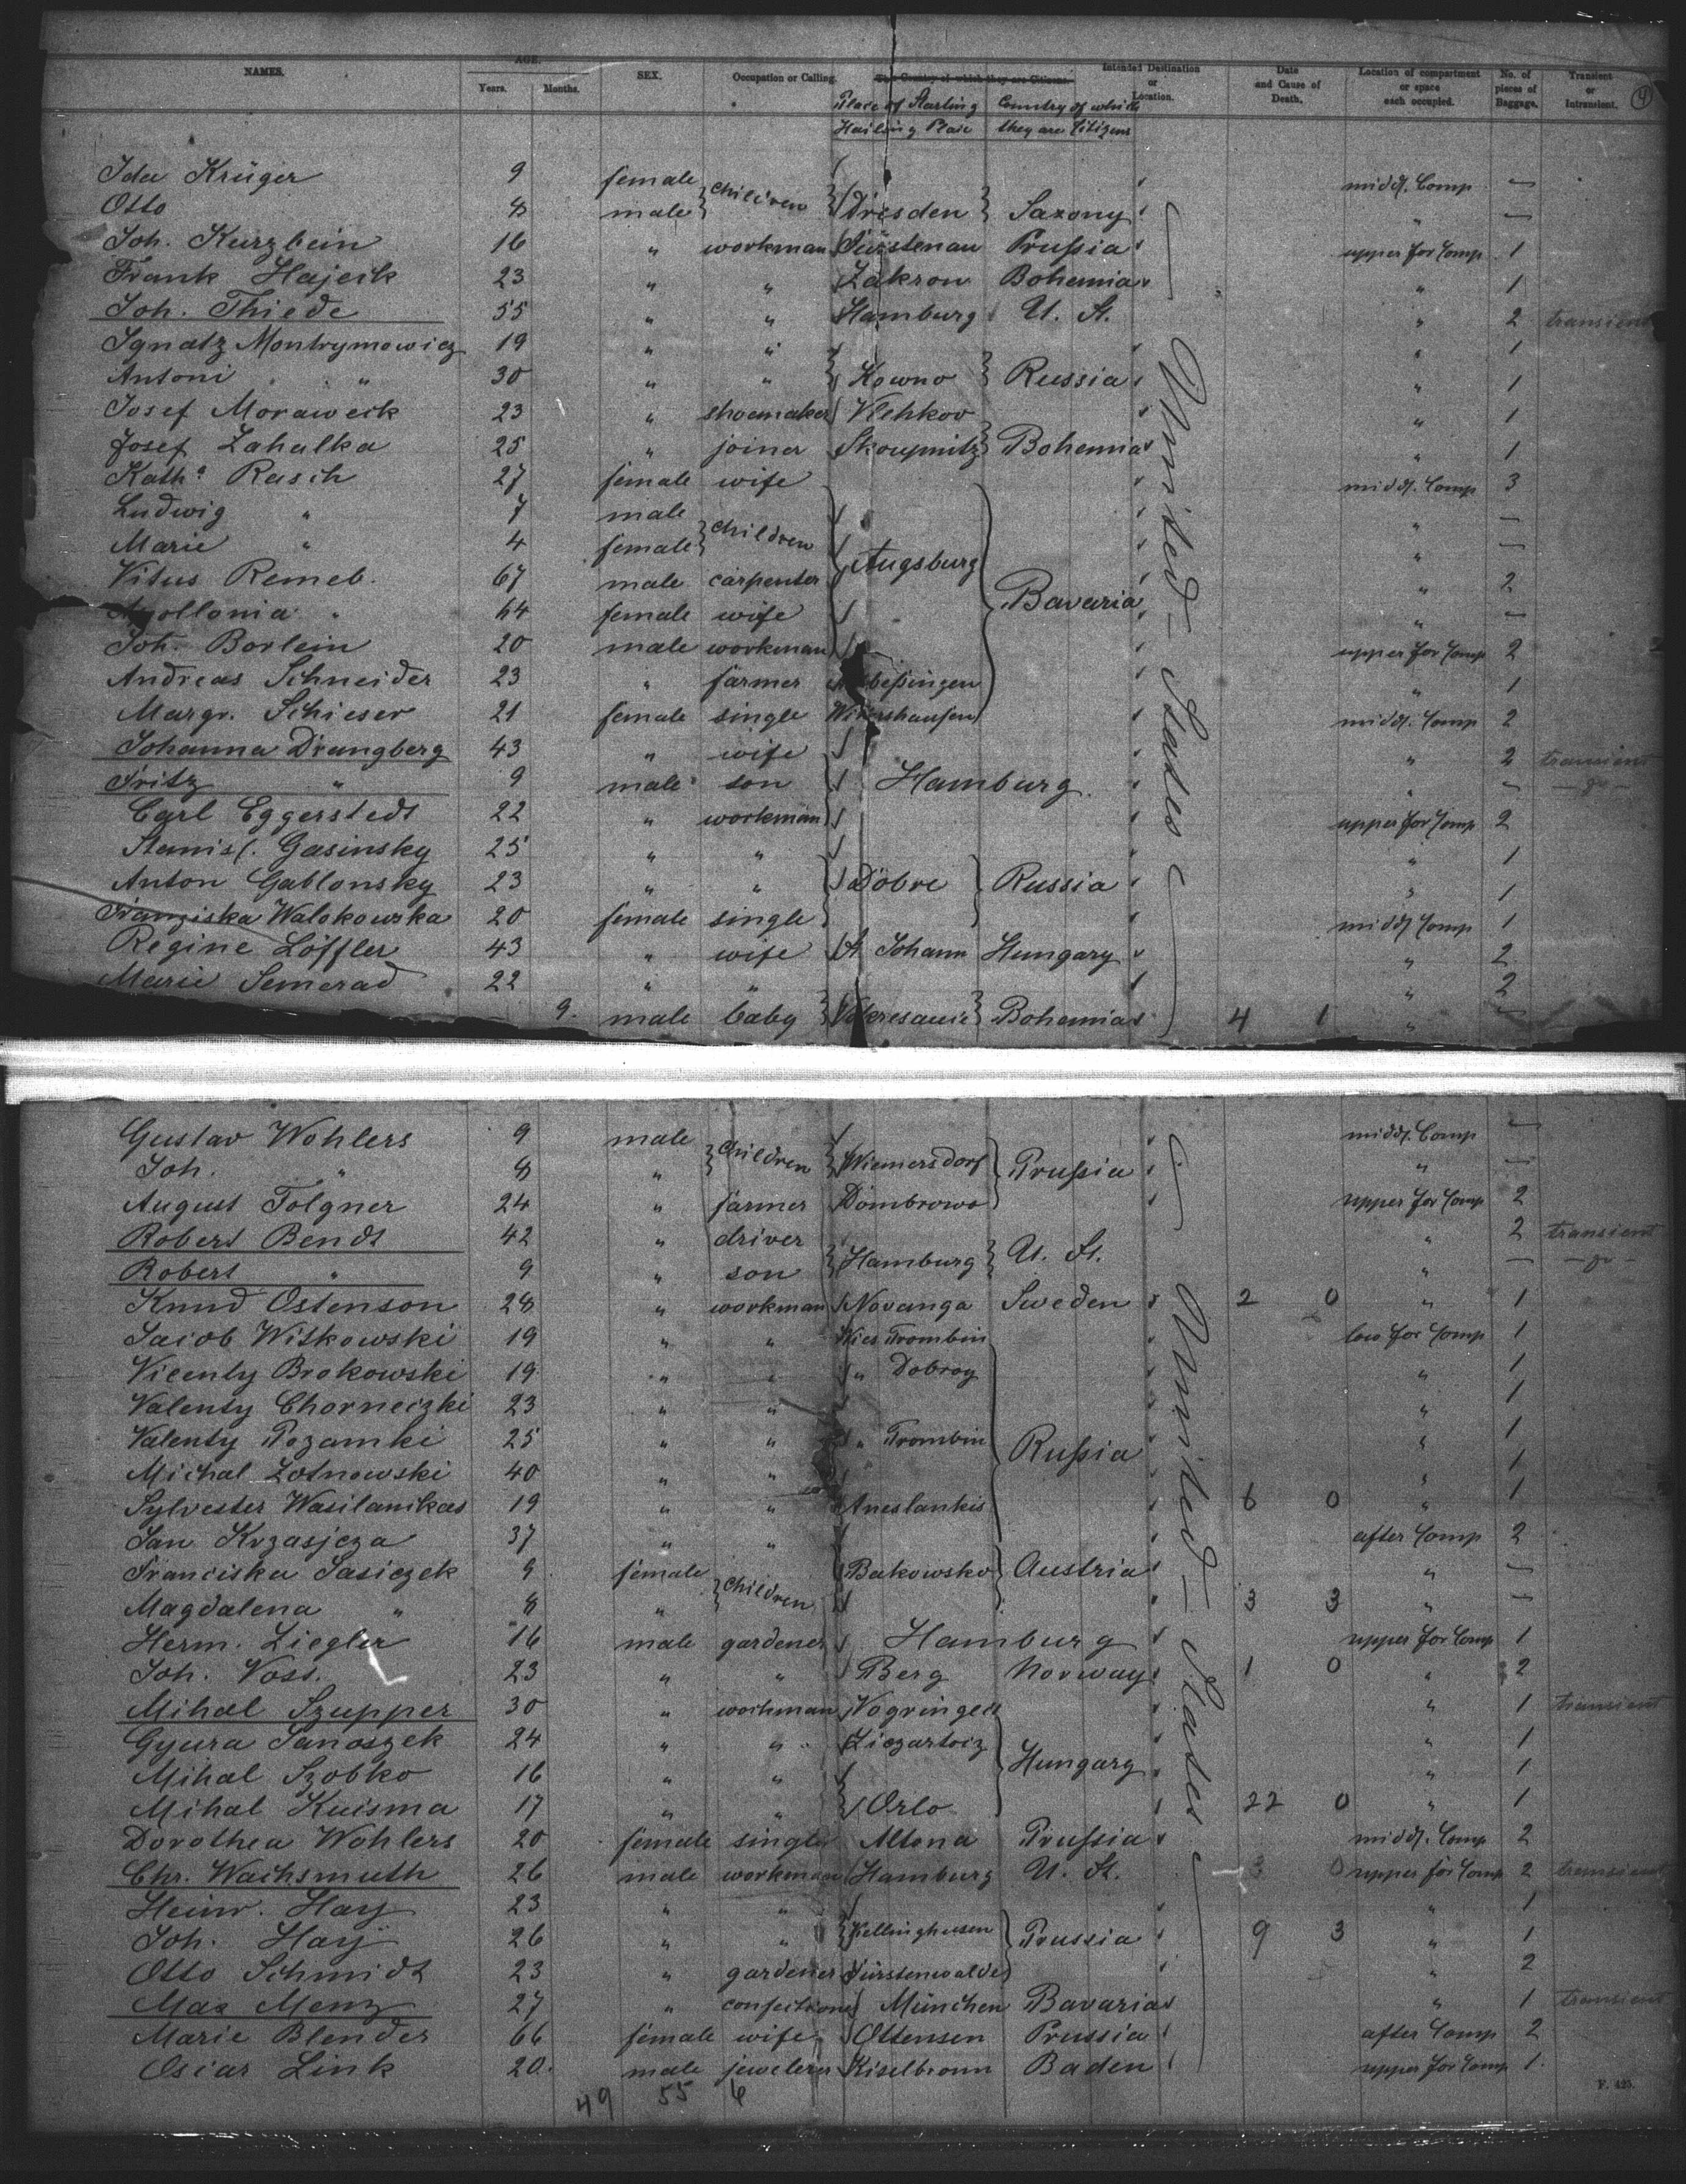 NAMES. AGE. Years. Months. SEX. Occupation or Calling. The Country of which they are Citizens. Intended Destination or Location. Date and Cause of Death. Location of compartment or space each occupied. No. of pieces of Baggage. Transient or Intransient. 4
Place of Starting Country of which
Hailing Place they are Citizens
Ida Krüger 9 female children middl. Comp —
Otto 8 male Dresden Saxony " —
Joh. Kurzbein 16 " workman Fürstenau Prußia upper for Comp 1
Frank Hajeck 23 " " Zakron Bohemia " 1
Joh. Thiede 55 " " Hamburg U. St. " 2 transient
Ignatz Montrymowicz 19 " " " 1
Antoni " 30 " " Kowno Russia " 1
Josef Moraweck 23 " shoemaker Vlehkov " 1
Josef Zahalka 25 " joiner Skoupnitz Bohemia " 1
Kath.a Rasch 27 female wife middl. Comp 3
Ludwig " 7 male children " —
Marie " 4 female Augsburg " —
Vitus Remeb. 67 male carpenter Bavaria " 2
Apollonia " 64 female wife " —
Joh. Borlein 20 male workman upper for Comp 2
Andreas Schneider 23 " farmer " 1
Margr. Schieser 21 female single middl. Comp 2
Johanna Drangberg 43 " wife " 2 transient
Fritz " 9 male son Hamburg. " — — do —
Carl Eggerstedt 22 " workman upper for Comp 2
Stanisl. Gasinsky 25 " " " 1
Anton Gablonsky 23 " " Dobre Russia " 1
Franziska Walokowska 20 female single middl Comp 1
Regine Löffler 43 " wife St Johann Hungary " 2
Marie Semerad 22 " " " 2
9. male baby Bohemia 4 1 " —
United States
Gustav Wohlers 9 male children middl. Comp —
Joh. " 8 " Wiemersdorf Prußia " —
August Tolgner 24 " farmer Dombrowo upper for Comp 2
Robert Bendt 42 " driver " 2 transient
Robert " 9 " son Hamburg U. St. " — — do —
Knud Ostenson 28 " workman Novanga Sweden 2 0 " 1
Jacob Witkowski 19 " " Wies Trombin low for Comp 1
Vicenty Brokowski 19 " " " Dobroy " 1
Valenty Chorneczki 23 " " " 1
Valenty Pozamki 25 " " " Trombin Rußia " 1
Michal Lotnowski 40 " " " 1
Sylvester Wasilanikas 19 " " Aneslankis 6 0 " 1
Jan Krzasjcza 37 " " after Comp 2
Franciska Sasiczek 9 female children Bakowsko Austria " —
Magdalena " 8 " 3 3 " —
Herm. Ziegler 16 male gardener Hamburg upper for Comp 1
Joh. Voss. 23 " " Berg Norway 1 0 " 2
Mihal Szupper 30 " workman Vogringen " 1 transient
Gyura Janoszek 24 " " Ziczartoiz " 1
Mihal Szobko 16 " " Hungary " 1
Mihal Kuisma 17 " " Orlo 22 0 " 1
Dorothea Wohlers 20 female single Altona Prußia middl. Comp 2
Chr. Wachsmuth 26 male workman Hamburg U. St. 3 0 upper for Comp 2 transient
Heinr. Hay 23 " " " 1
Joh. Hay 26 " " Kellinghusen Prussia 9 3 " 1
Otto Schmidt 23 " gardener Fürstenwalde " 2
Max Menz 27 " confectioner München Bavaria " 1 transient
Marie Blender 66 female wife Ottensen Prussia after Comp 2
Oscar Link 20. male jewelerer Kiselbronn Baden upper for Comp 1.
United States
49 55 6
F. 425.